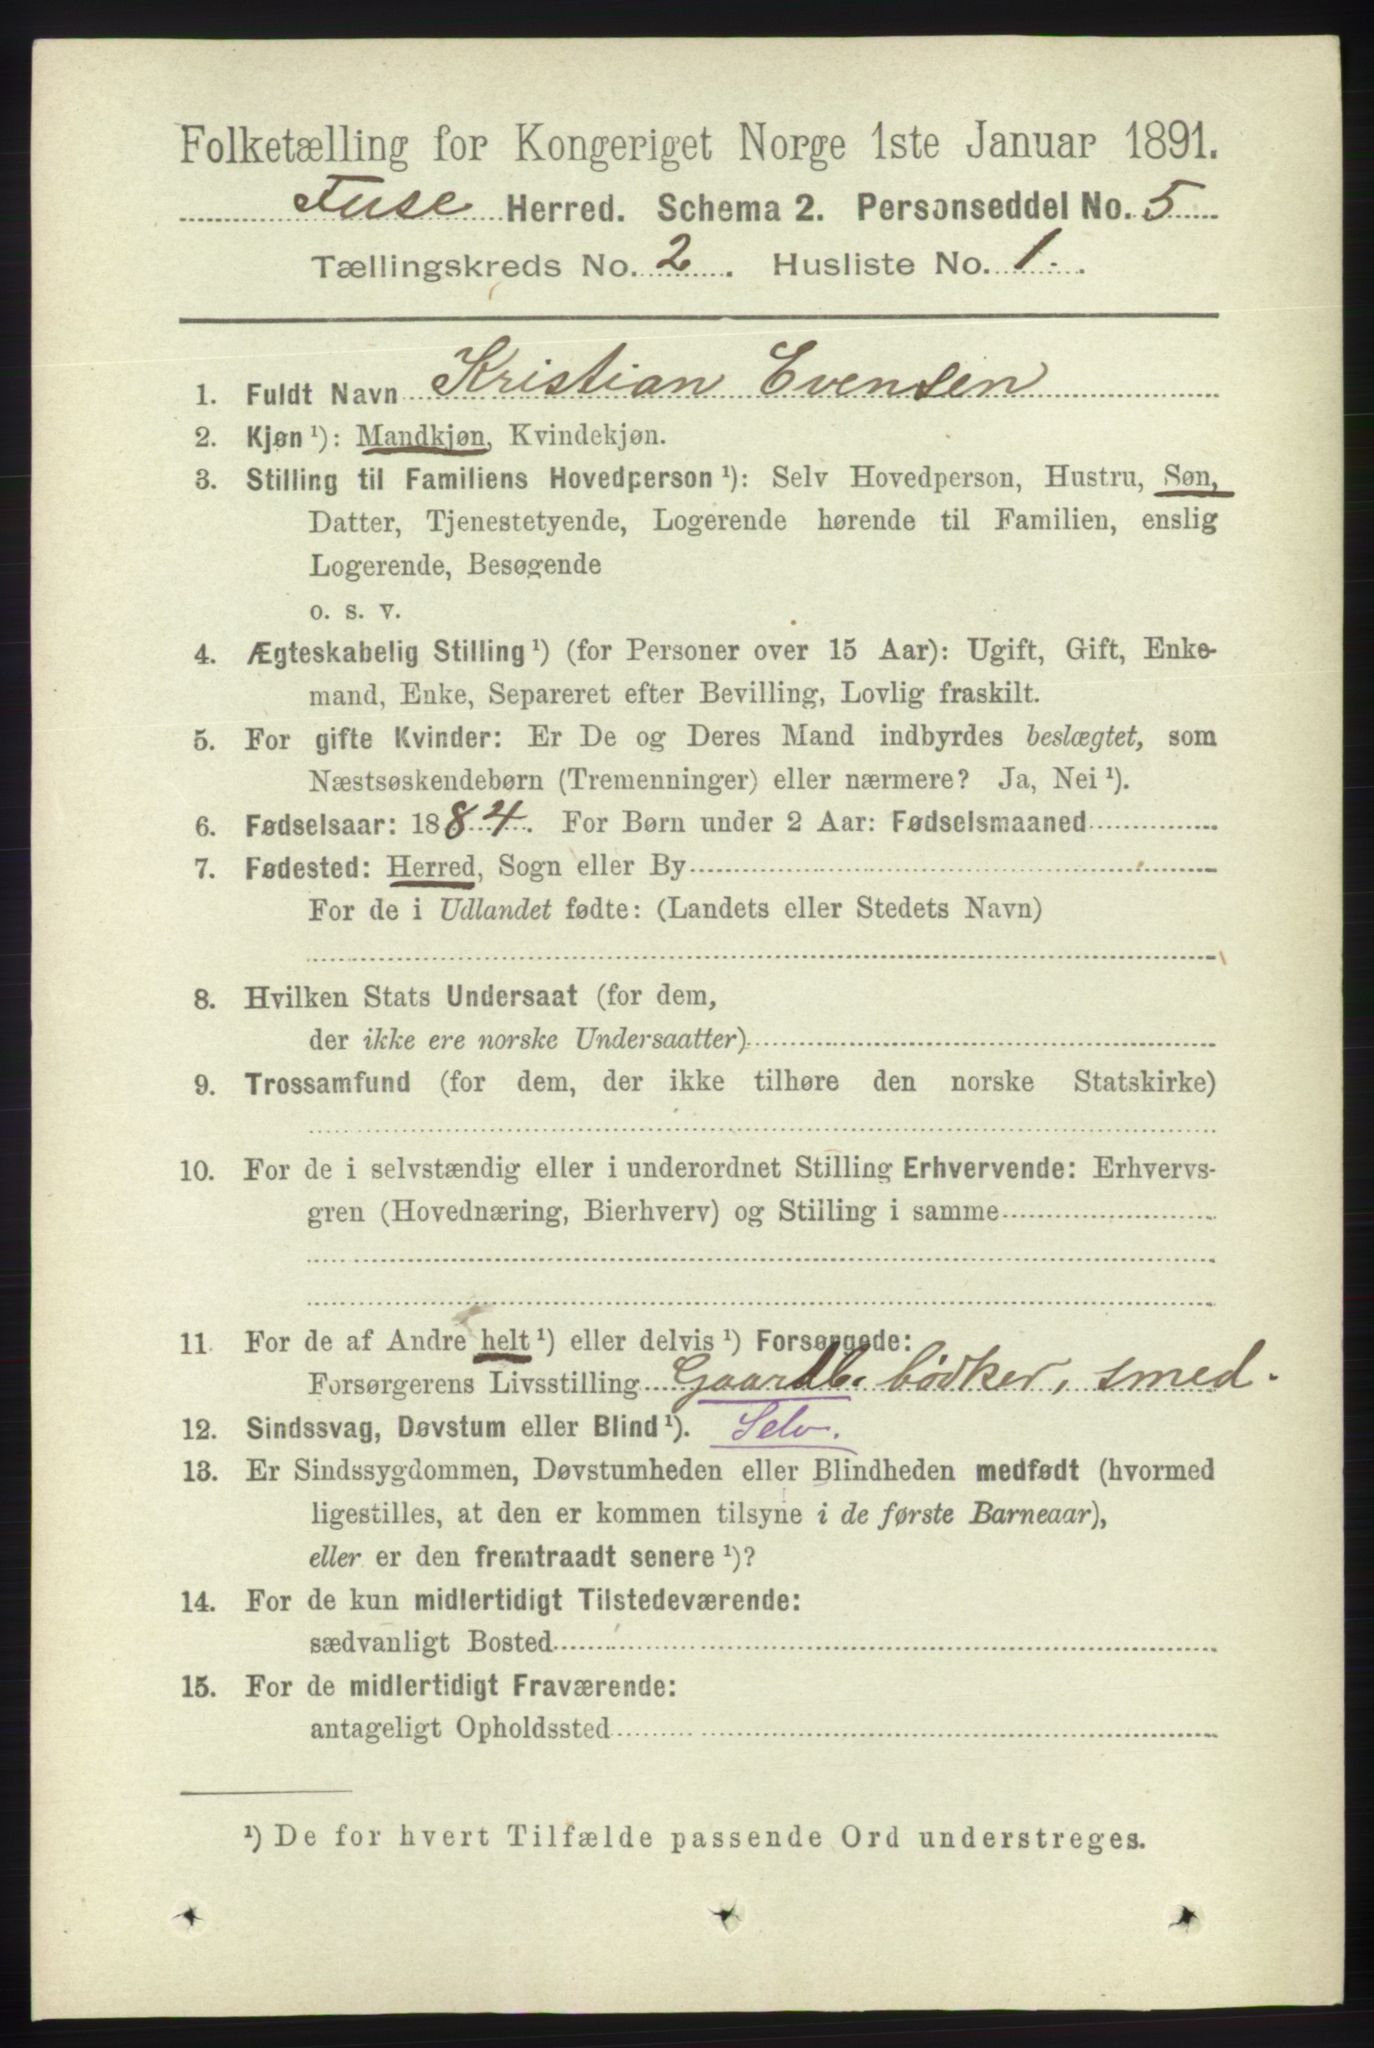 Folketælling for Kongeriget Norge 1ste Januar 1891.
Fuse Herred. Schema 2. Personseddel No. 5
Tællingskreds No. 2. Husliste No. 1.
1. Fuldt Navn Kristian Evensen
2. Kjøn ¹): Mandkjøn, Kvindekjøn.
3. Stilling til Familiens Hovedperson ¹): Selv Hovedperson, Hustru, Søn,
Datter, Tjenestetyende, Logerende hørende til Familien, enslig
Logerende, Besøgende
o. s. v.
4. Ægteskabelig Stilling ¹) (for Personer over 15 Aar): Ugift, Gift, Enke-
mand, Enke, Separeret efter Bevilling, Lovlig fraskilt.
5. For gifte Kvinder: Er De og Deres Mand indbyrdes beslægtet, som
Næstsøskendebørn (Tremenninger) eller nærmere? Ja, Nei ¹).
6. Fødselsaar: 1884. For Børn under 2 Aar: Fødselsmaaned
7. Fødested: Herred, Sogn eller By
For de i Udlandet fødte: (Landets eller Stedets Navn)
8. Hvilken Stats Undersaat (for dem,
der ikke ere norske Undersaatter)
9. Trossamfund (for dem, der ikke tilhøre den norske Statskirke)
10. For de i selvstændig eller i underordnet Stilling Erhvervende: Erhvervs-
gren (Hovednæring, Bierhverv) og Stilling i samme
11. For de af Andre helt ¹) eller delvis ¹) Forsørgede:
Forsørgerens Livsstilling Gaardb. bödker, smed.
12. Sindssvag, Døvstum eller Blind ¹). Selv.
13. Er Sindssygdommen, Døvstumheden eller Blindheden medfødt (hvormed
ligestilles, at den er kommen tilsyne i de første Barneaar),
eller er den fremtraadt senere ¹)?
14. For de kun midlertidigt Tilstedeværende:
sædvanligt Bosted
15. For de midlertidigt Fraværende:
antageligt Opholdssted
¹) De for hvert Tilfælde passende Ord understreges.